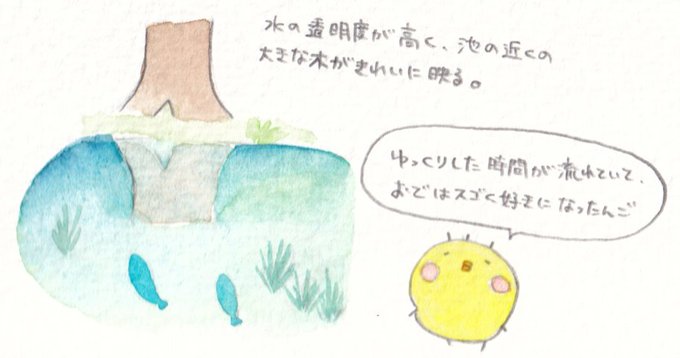 水の透明度が高く、池の近くの
大きな木がきれいに映る。
ゆっくりした時間が流れていて、
おではスゴく好きになったんご